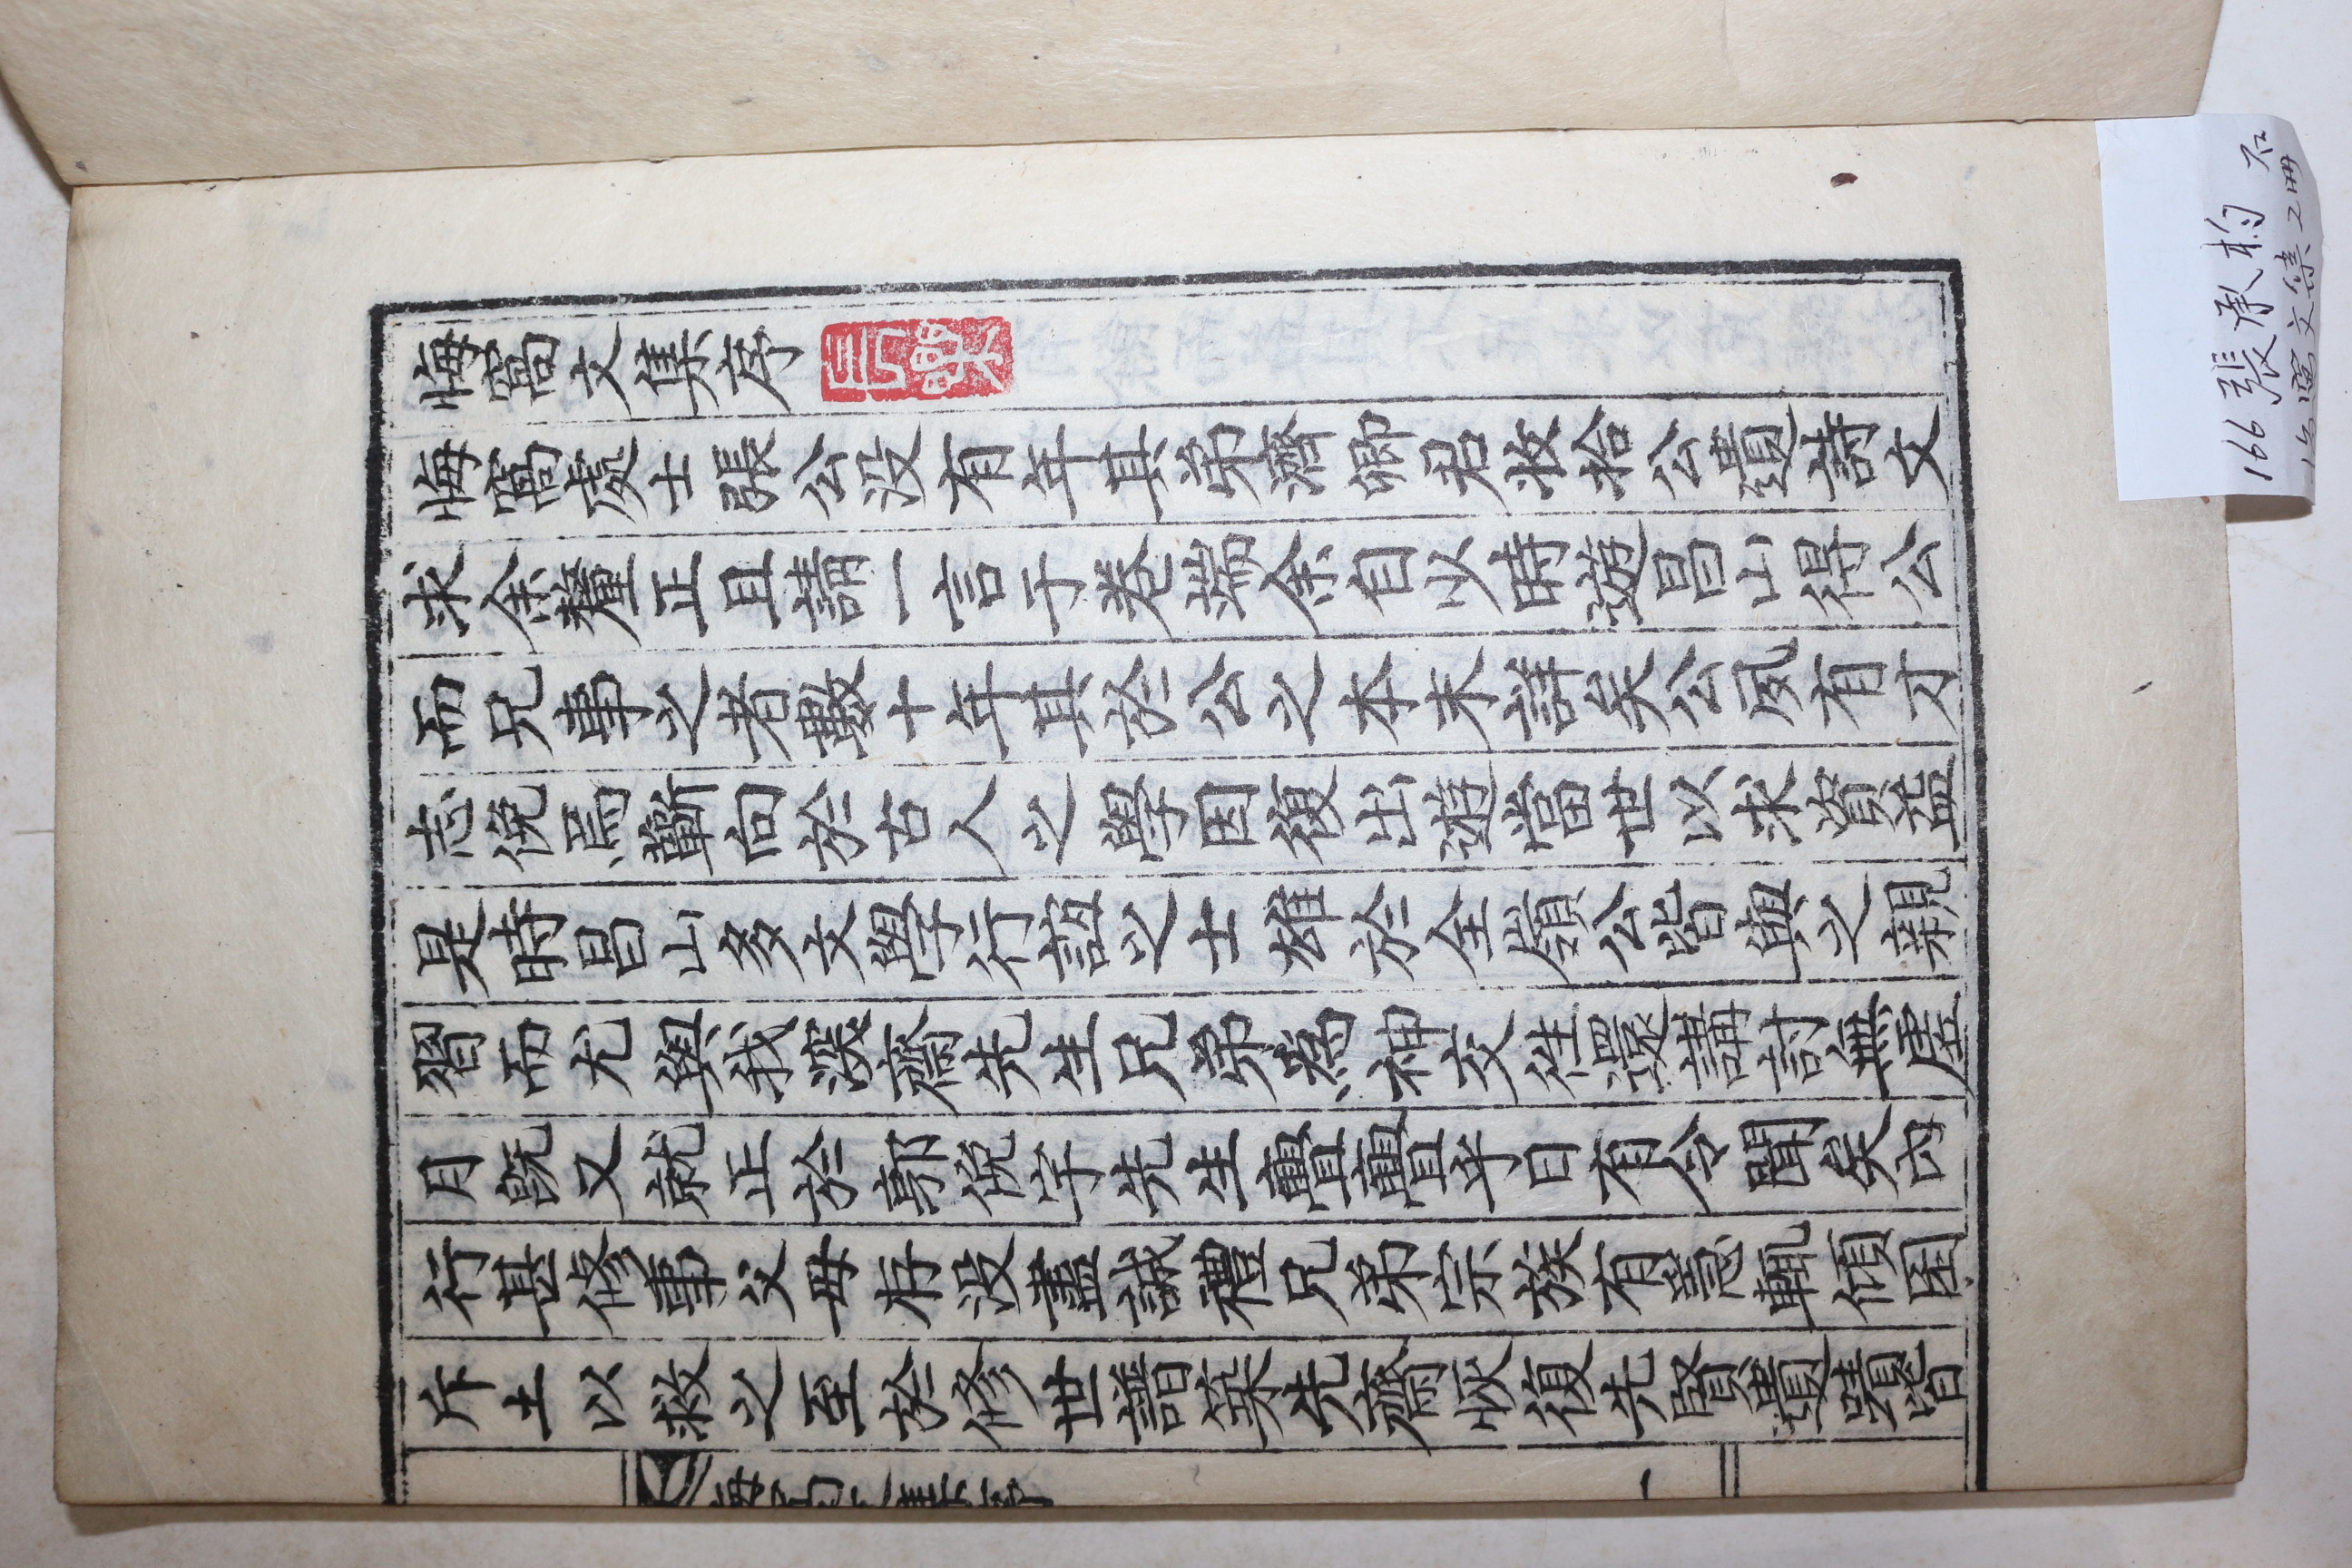 悔窩文集序
長樂
悔窩處士張公没有年其弟濟卿君收拾公遺詩文
求余釐正且請一言于卷端余自少時遊昌山得公
而兄事之者數十年其於公之本末詳矣公夙有才
志俛焉蘄向於古人之學因復出遊當世以求資益
是時昌山多文學行誼之士雄於全嶺公皆與之親
習而尤與我深齋先生兄弟爲神交徃還講討無虛
月旣又就正於郭俛宇先生亹亹乎日有令聞矣内
行甚修事父母存没盡誠禮兄弟宗族有急輒傾囷
斥土以救之至於修世譜築先齋恢復先賢遺蹟皆
一
166 張承柏
文集 2冊